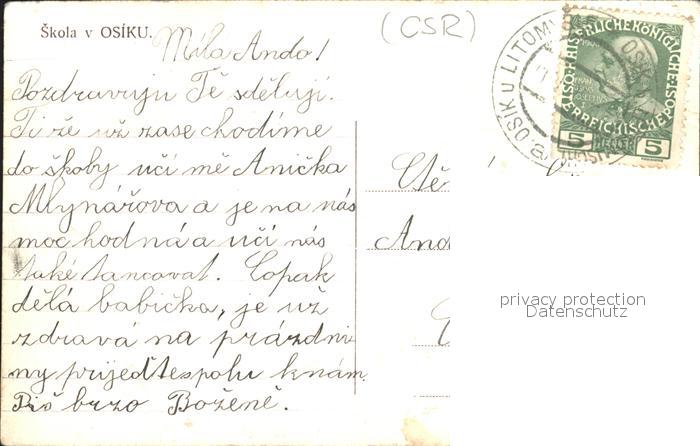 Škola v OSÍKU.
(CSR)
Milá Ando!
Pozdravuju Tě sděluji.
Ti že už zase chodíme
do školy učí mě Anička
Mlynářova a je na nás
moc hodná a učí nás
také tancovat. Copak
dělá babička, je už
zdravá na prázdni
ny prijedte spolu k nám
Piš brzo Boženě.
OSÍK U LITOMY
KAISERLICHE KÖNIGLICHE
ÖSTERREICHISCHE POST
5 HELLER 5
And
privacy protection
Datenschutz